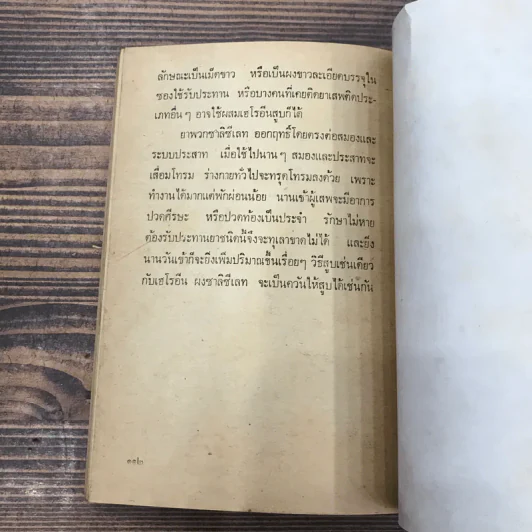 ลักษณะเป็นเม็ดขาว หรือเป็นผงขาวละเอียดบรรจุใน
ซองใช้รับประทาน หรือบางคนที่เคยติดยาเสพติดประ-
เภทอื่น ๆ อาจใช้ผสมเฮโรอีนสูบก็ได้
ยาพวกซาลิซีเลท ออกฤทธิ์โดยตรงต่อสมองและ
ระบบประสาท เมื่อใช้ไปนาน ๆ สมองและประสาทจะ
เสื่อมโทรม ร่างกายทั่วไปจะทรุดโทรมลงด้วย เพราะ
ทำงานได้มากแต่พักผ่อนน้อย นานเข้าผู้เสพจะมีอาการ
ปวดศีรษะ หรือปวดท้องเป็นประจำ รักษาไม่หาย
ต้องรับประทานยาชนิดนี้จึงจะทุเลาขาดไม่ได้ และยิ่ง
นานวันเข้าก็จะยิ่งเพิ่มปริมาณขึ้นเรื่อยๆ วิธีสูบเช่นเดียว
กับเฮโรอีน ผงซาลิซีเลท จะเป็นควันให้สูบได้เช่นกัน
๑๑๒